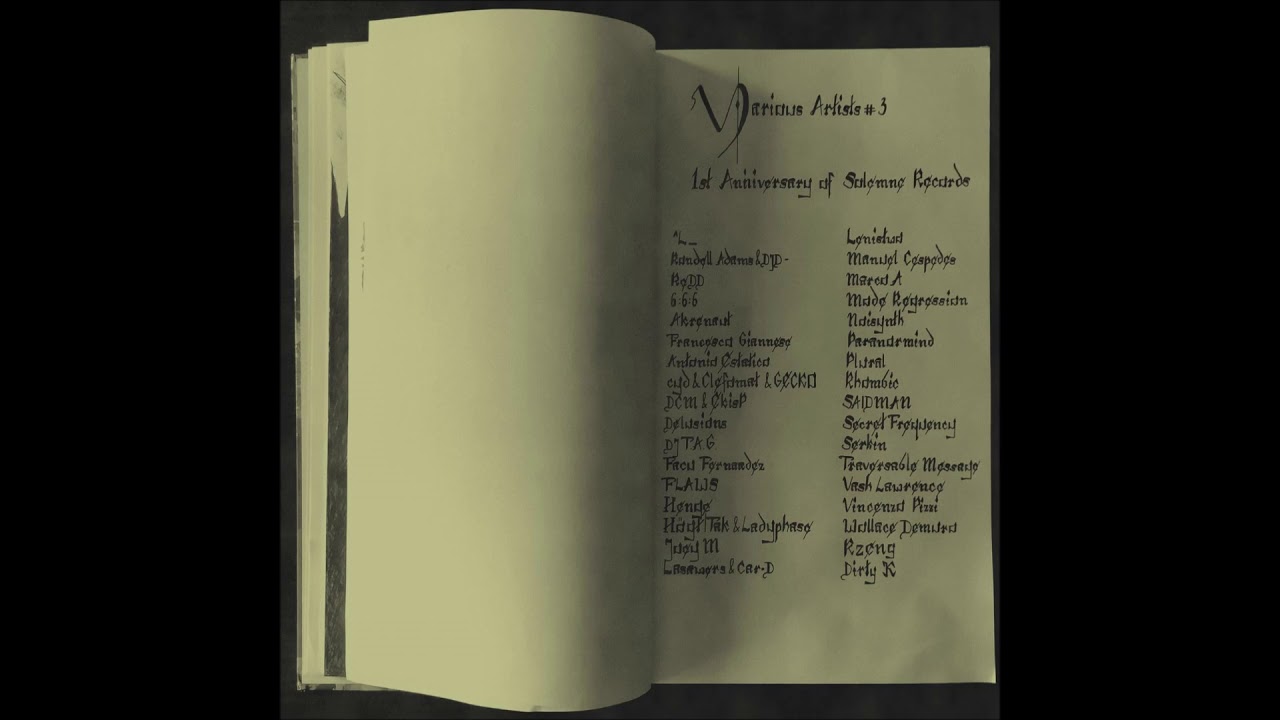 Various Artists #3
1st Anniversary of Solemne Records
"L_
Randell Adams & DJD-
ReDD
6:6:6
Akronaut
Francesco Giannese
Antonio Estatico
cyd & Clefomat & GECKO
DCM & EkisP
Delusions
DJ T.A.G.
Facu Fernandez
FLAWS
Henge
Høgt Tak & Ladyphase
Joey M
Lasawers & Car-D
Lenistwo
Manuel Cespedes
Marco A
Mode Regression
Noisynth
Paranormind
Plural
Rhombic
SAIDMAN
Secret Frequency
Serkin
Traversable Message
Vash Lawrence
Vincenzo Pizzi
Wallace Demuro
Rzeng
Dirty K